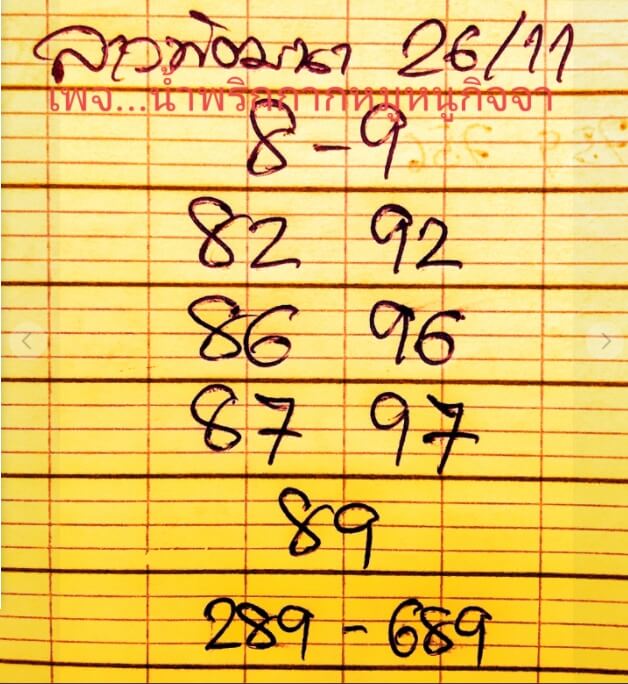 ลาวพัฒนา 26/11
เพจ...น้ำพริกกากหมูหนูกิจจา
8-9
82 92
86 96
87 97
89
289-689